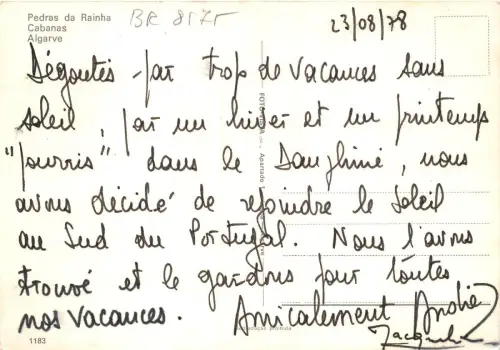 Pedras da Rainha
Cabanas
Algarve
BR 8175
23/08/78
Dégoutés par trop de vacances sans
soleil, par un hiver et un printemps
"pourris" dans le Dauphiné, nous
avons décidé de rejoindre le soleil
au Sud du Portugal. Nous l'avons
trouvé et le gardons pour toutes
nos vacances. Amicalement
1183